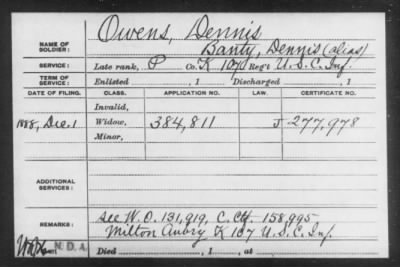 Owens, Dennis
NAME OF SOLDIER: Banty, Dennis (alias)
SERVICE: Late rank, P Co. K 107 Reg't U.S.C. Inf.
TERM OF SERVICE: Enlisted , 1 Discharged , 1
DATE OF FILING. CLASS. APPLICATION NO. LAW. CERTIFICATE NO.
Invalid,
1888, Dec. 1 Widow, 384,811 J 277,978
Minor,
ADDITIONAL SERVICES:
REMARKS: see W.O. 131,919, C. Ctf. 158,995
Milton Aubry K 107 U.S.C. Inf.
N.D.A. Died , 1 , at